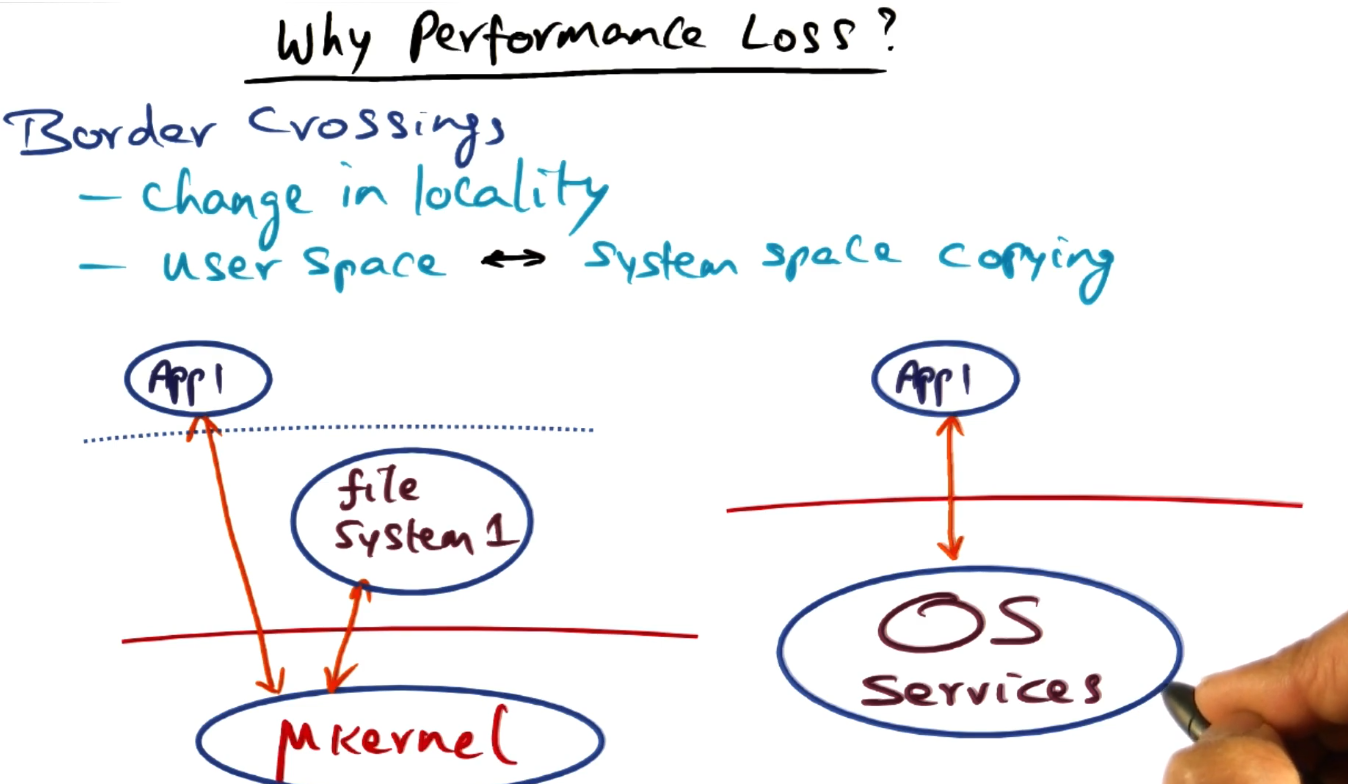 Why Performance Loss?
Border Crossings
- Change in locality
- User space ↔ System space copying
App1
App1
file
System 1
OS
Services
μKernel